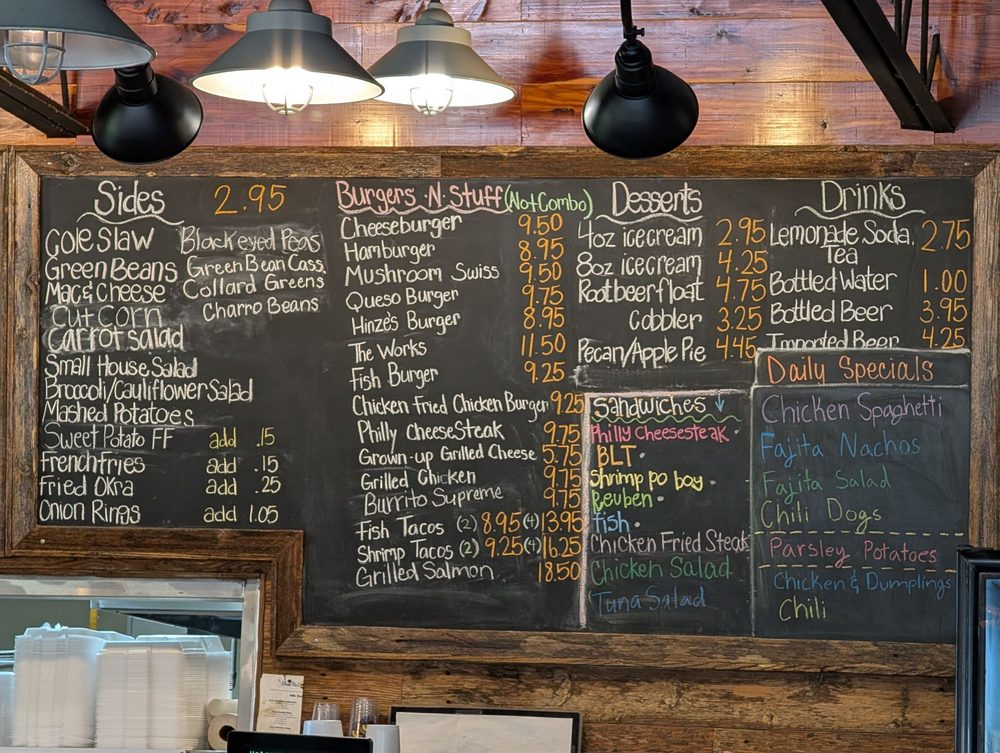 Sides 2.95
Cole Slaw
Green Beans
Mac & Cheese
Cut Corn
Carrot Salad
Small House Salad
Broccoli/Cauliflower Salad
Mashed Potatoes
Sweet Potato FF add .15
French Fries add .15
Fried Okra add .25
Onion Rings add 1.05
Black eyed Peas
Green Bean Cass.
Collard Greens
Charro Beans
Burgers -N- Stuff (Not Combo)
Cheeseburger 9.50
Hamburger 8.95
Mushroom Swiss 9.50
Queso Burger 9.75
Hinze's Burger 8.95
The Works 11.50
Fish Burger 9.25
Chicken Fried Chicken Burger 9.25
Philly Cheese Steak 9.75
Grown-up Grilled Cheese 5.75
Grilled Chicken 9.75
Burrito Supreme 9.75
Fish Tacos (2) 8.95 (4) 13.95
Shrimp Tacos (2) 9.25 (4) 16.25
Grilled Salmon 18.50
Desserts
4oz ice cream 2.95
8oz ice cream 4.25
Rootbeer float 4.75
Cobbler 3.25
Pecan/Apple Pie 4.45
Drinks
Lemonade Soda, 2.75
Tea
Bottled Water 1.00
Bottled Beer 3.95
Imported Beer 4.25
Sandwiches ↓
Philly Cheesesteak •
BLT •
Shrimp po boy •
Reuben •
fish •
Chicken Fried Steak
Chicken Salad
Tuna Salad
Daily Specials
Chicken Spaghetti
Fajita Nachos
Fajita Salad
Chili Dogs
Parsley Potatoes
Chicken & Dumplings
Chili